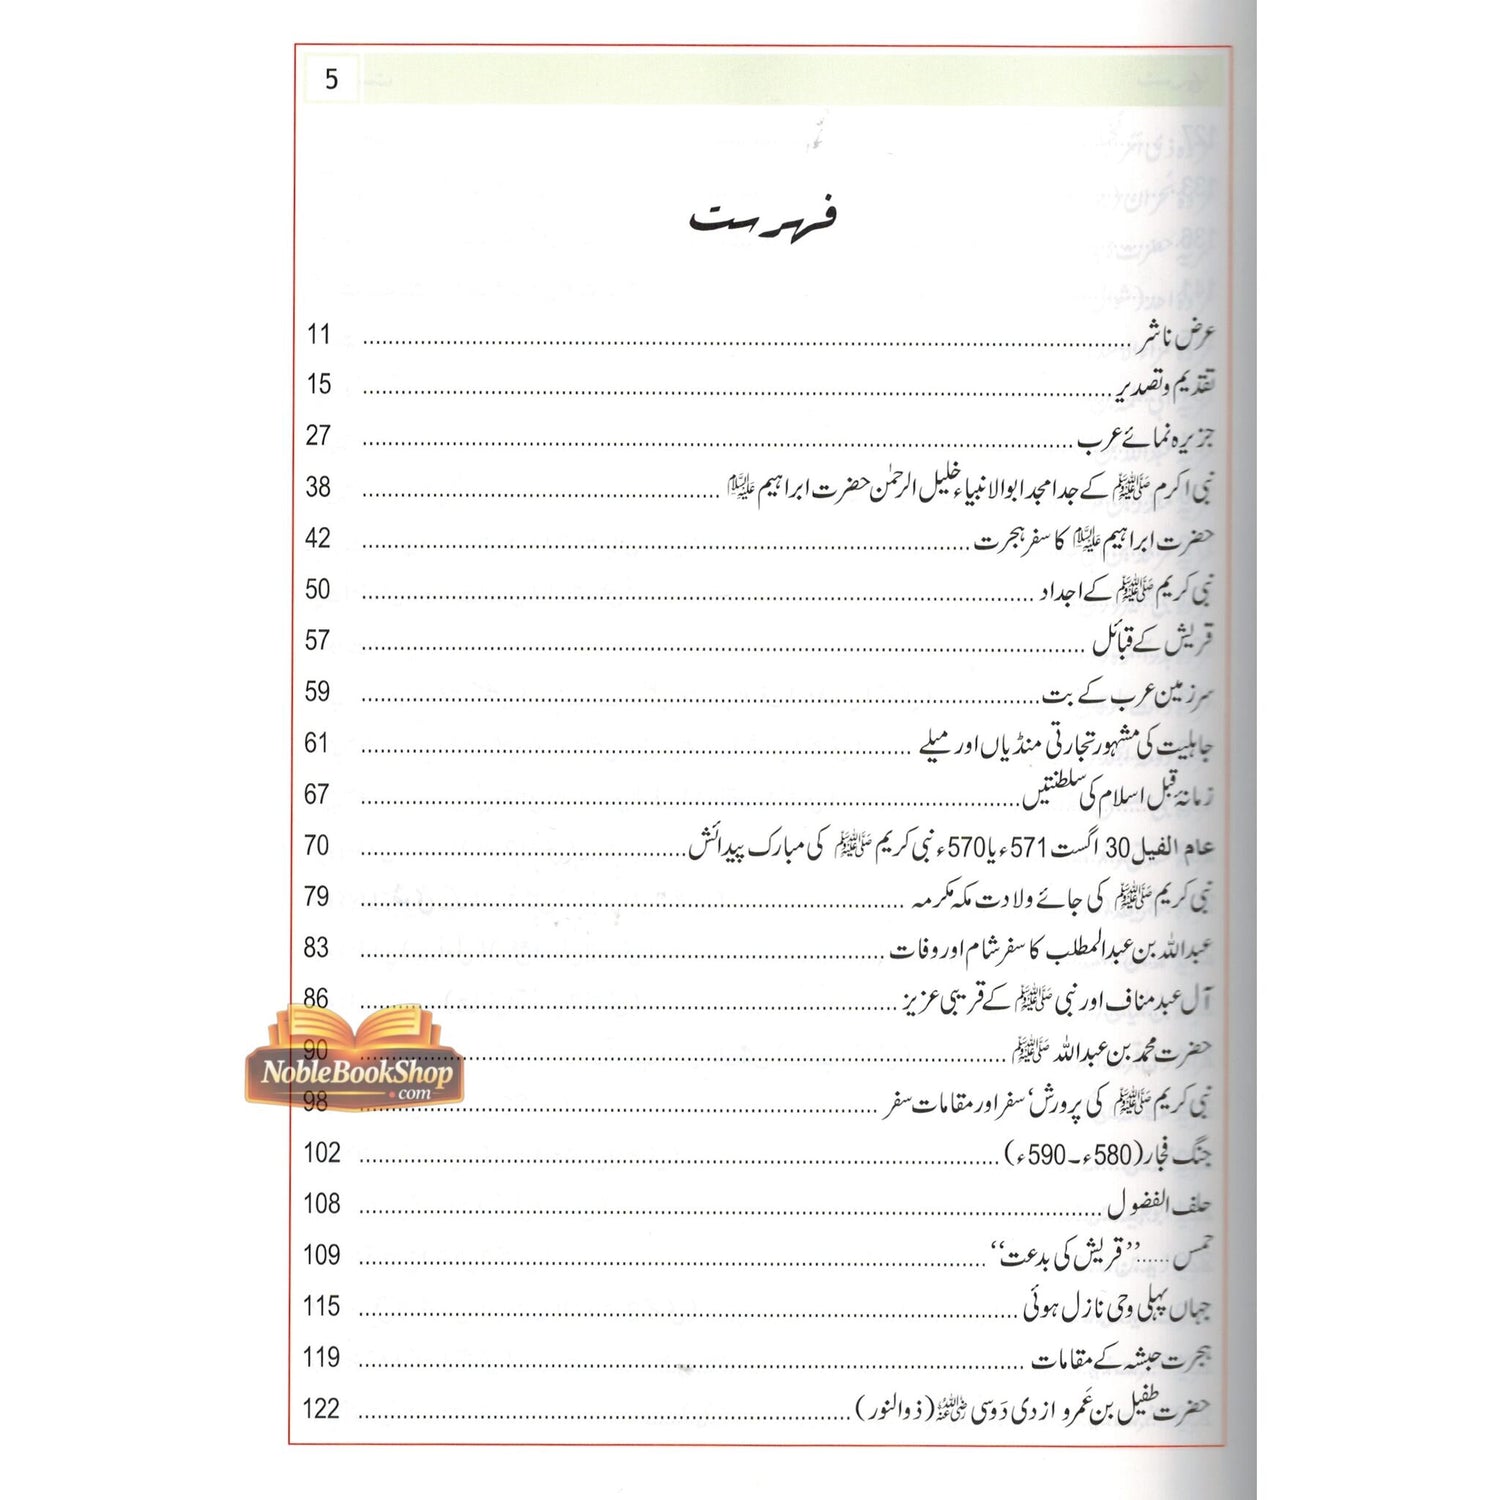 5
فہرست
عرض ناشر ........ 11
تقدیم و تصدیر ........ 15
جزیرہ نمائے عرب ........ 27
نبی اکرم ﷺ کے جد امجد ابو الانبیاء خلیل الرحمٰن حضرت ابراہیم علیہ السلام ........ 38
حضرت ابراہیم علیہ السلام کا سفر ہجرت ........ 42
نبی کریم ﷺ کے اجداد ........ 50
قریش کے قبائل ........ 57
سرزمین عرب کے بت ........ 59
جاہلیت کی مشہور تجارتی منڈیاں اور میلے ........ 61
زمانۂ قبل اسلام کی سلطنتیں ........ 67
عام الفیل 30 اگست 571ء یا 570ء نبی کریم ﷺ کی مبارک پیدائش ........ 70
نبی کریم ﷺ کی جائے ولادت مکہ مکرمہ ........ 79
عبداللہ بن عبدالمطلب کا سفر شام اور وفات ........ 83
آل عبد مناف اور نبی ﷺ کے قریبی عزیز ........ 86
حضرت محمد بن عبداللہ ﷺ ........ 90
نبی کریم ﷺ کی پرورش، سفر اور مقامات سفر ........ 98
NobleBookShop
.com
جنگ فجار (580ء - 590ء) ........ 102
حلف الفضول ........ 108
حمس ...... ”قریش کی بدعت“ ........ 109
جہاں پہلی وحی نازل ہوئی ........ 115
ہجرت حبشہ کے مقامات ........ 119
حضرت طفیل بن عَمرو ازدی دَوسی رضی اللہ عنہ (ذوالنور) ........ 122